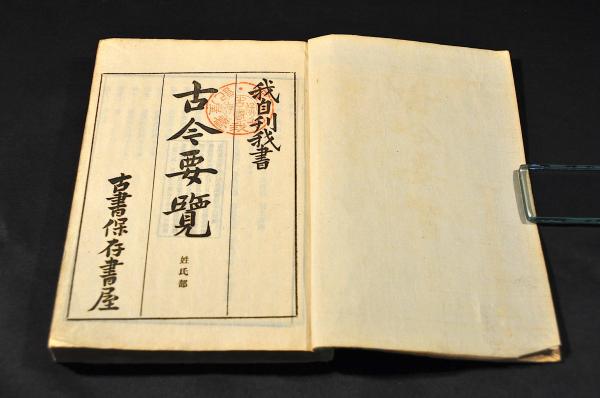 我自刊我書
古今要覽
姓氏部
古書保存書屋